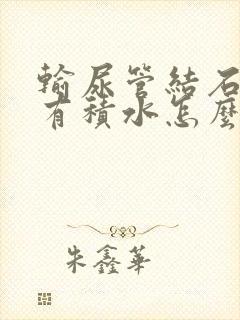 輸尿管結石
有積水怎麼
朱鑫華